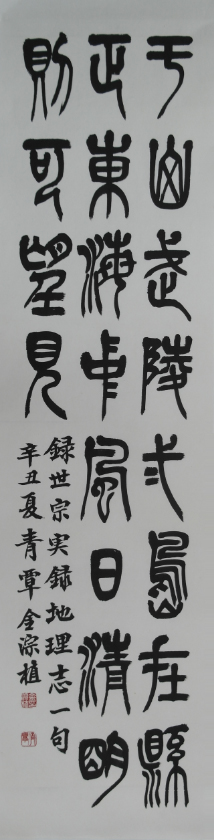 于山武陵弍島在縣
正東海中風日清明
則可望見
録世宗実録地理志一句
辛丑夏青覃金淙植